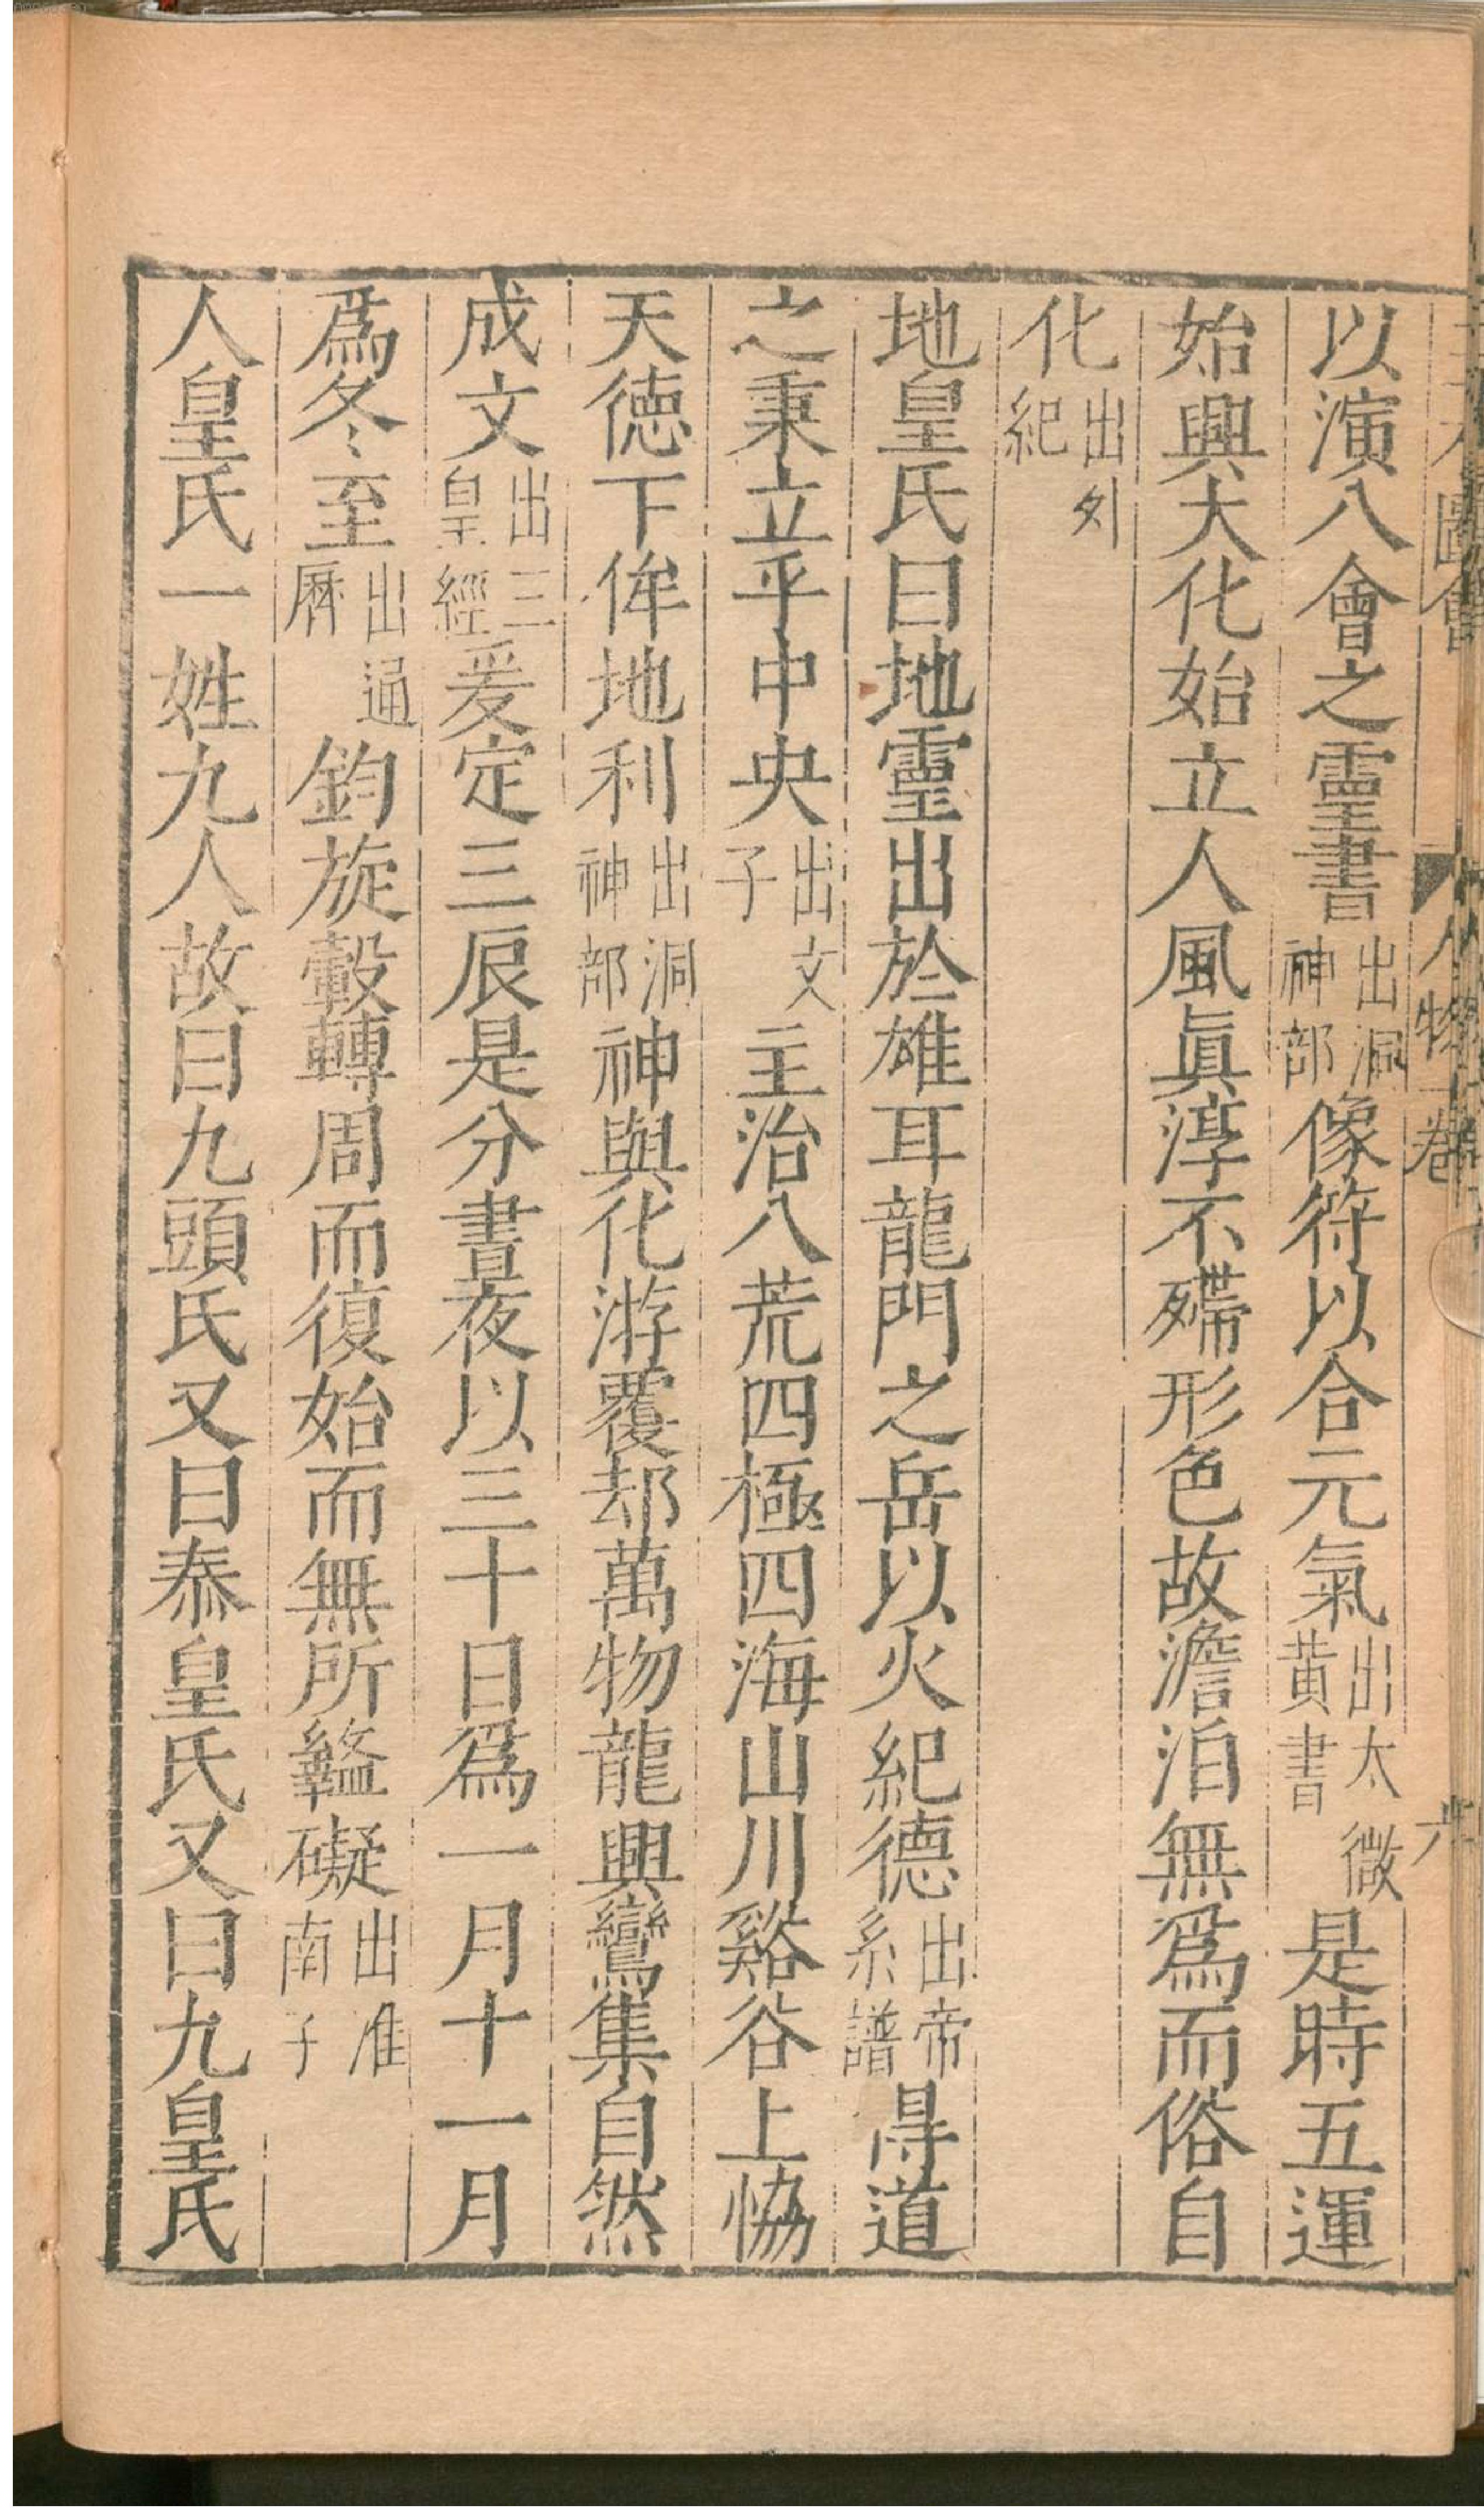 三才圖會 人物一卷 六
以演八會之靈書出洞神部像符以合元氣出太微黃書是時五運
始興大化始立人風眞淳不殢形色故澹泊無爲而俗自
化出外紀
地皇氏曰地靈出於雄耳龍門之岳以火紀德出帝系譜得道
之秉立乎中央出文子主治八荒四極四海山川谿谷上恊
天德下侔地利出洞神部神與化游覆却萬物龍興鸞集自然
成文出三皇經爰定三辰是分晝夜以三十日爲一月十一月
爲冬至出通曆鈞旋轂轉周而復始而無所礙出淮南子
人皇氏一姓九人故曰九頭氏又曰泰皇氏又曰九皇氏